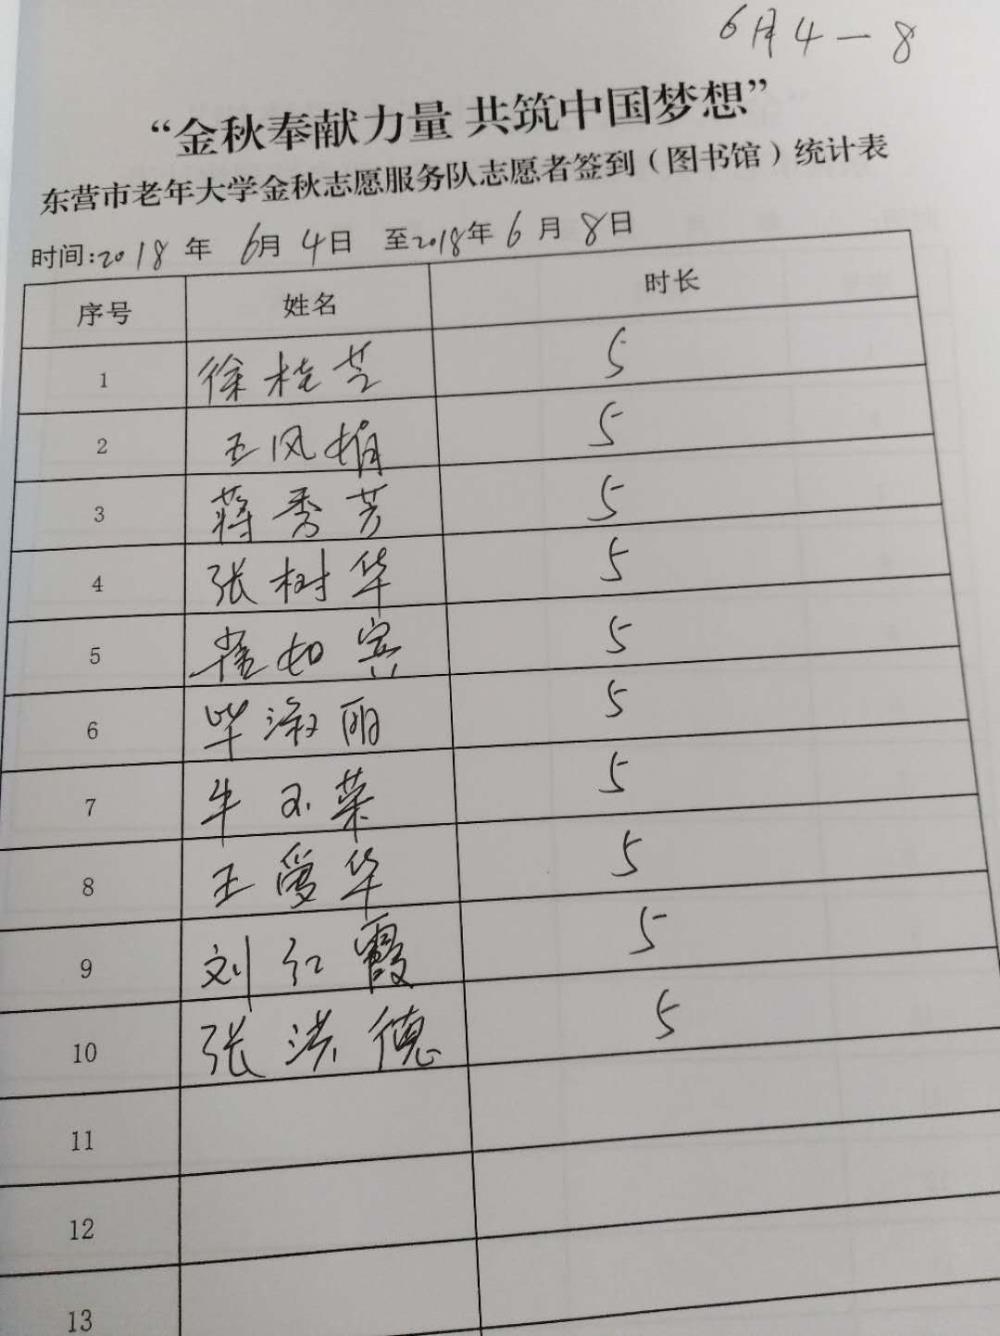 6月4-8
“金秋奉献力量 共筑中国梦想”
东营市老年大学金秋志愿服务队志愿者签到（图书馆）统计表
时间:2018年 6月4日 至2018年6月8日
序号 姓名 时长
1 徐桂芝 5
2 王风娟 5
3 蒋秀芳 5
4 张树华 5
5 如宾 5
6 毕淑丽 5
7 牛玉荣 5
8 王爱华 5
9 刘红霞 5
10 张洪德 5
11
12
13